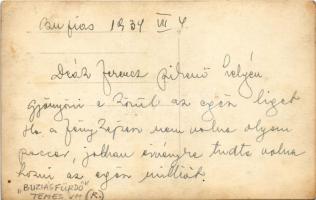 Buzias 1934 VII 4
Deák Ferenc pihenő helyén
gyönyörű e körül az egész liget
Ha a fényképem nem volna olyan
pacer, jobban érvényre tudta volna
hozni az egész
"BUZIÁSFÜRDŐ"
TEMES VM (R.)